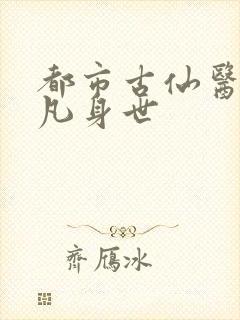 都市古仙醫
凡身世
齊鴈冰